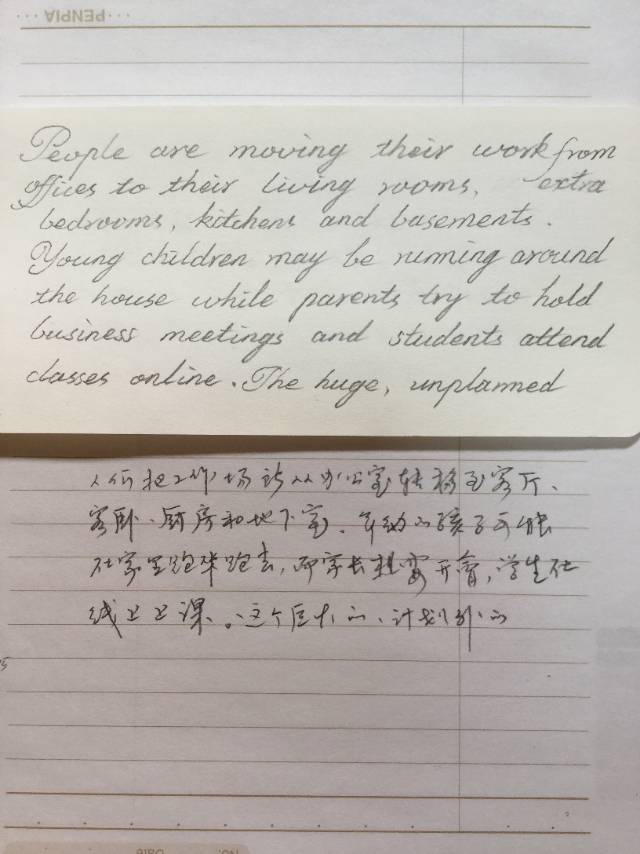 PENPIA
People are moving their work from
offices to their living rooms, extra
bedrooms, kitchens and basements.
Young children may be running around
the house while parents try to hold
business meetings and students attend
classes online. The huge, unplanned
人们把工作场所从办公室转移至客厅、
客卧、厨房和地下室。年幼的孩子可能
在家里跑来跑去,而家长想要开会,学生在
线上上课。这个巨大的、计划外的